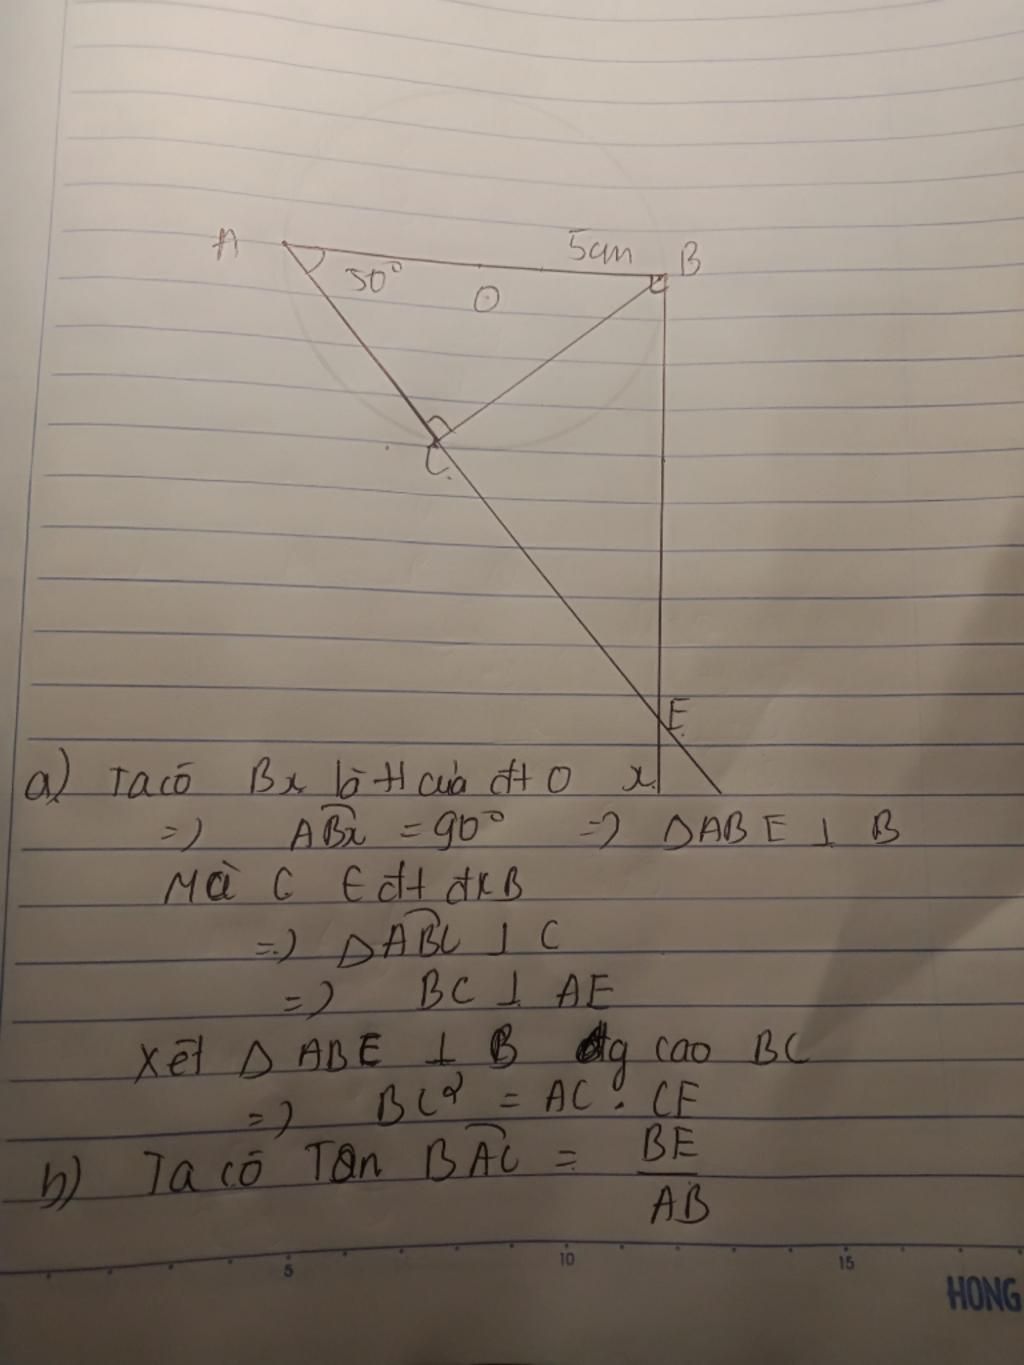 A
5cm
B
50°
O
C
E
a) Ta có Bx là tt của đt O
x
=> ABx = 90° => ΔABE ⊥ B
Mà C ∈ đt đk B
=> ΔABC ⊥ C
=> BC ⊥ AE
Xét Δ ABE ⊥ B đg cao BC
=> BC² = AC . CE
b) Ta có Tan BAC = BE
AB
5 10 15
HONG